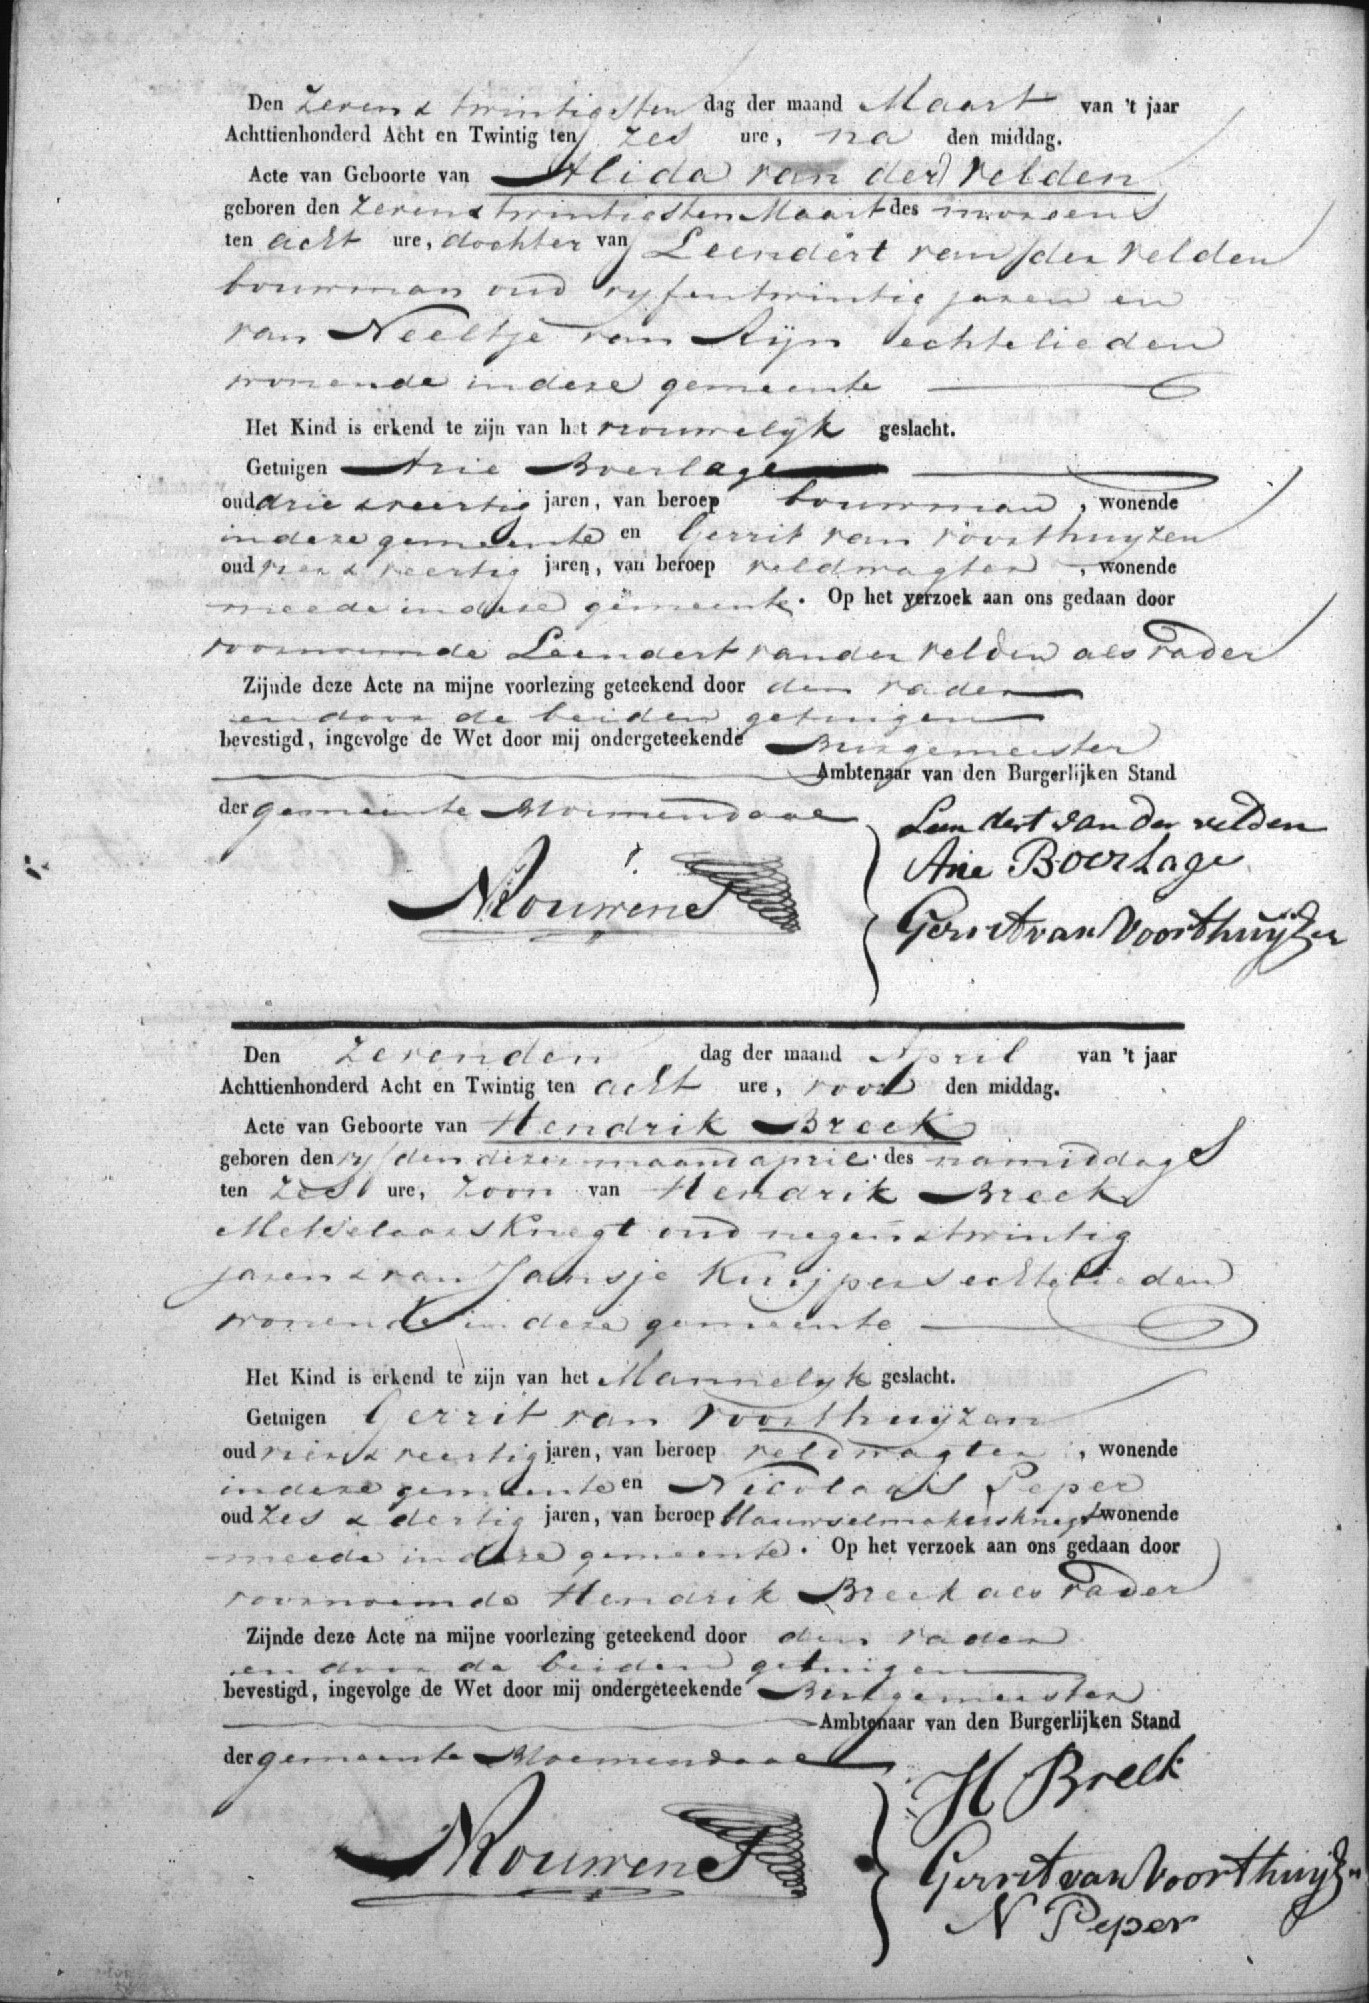 Den Zeven & twintigsten dag der maand Maart van 't jaar
Achttienhonderd Acht en Twintig ten zes ure, na den middag.
Acte van Geboorte van Alida van der Velden
geboren den Zeven & twintigsten Maart des morgens
ten acht ure, dochter van Leendert van der Velden
bouwman oud vyfentwintig jaren en
van Neeltje van Rijn echtelieden
wonende in deze gemeente
Het Kind is erkend te zijn van het vrouwelijk geslacht.
Getuigen Arie Boerlage
oud drie & veertig jaren, van beroep bouwman, wonende
in deze gemeente en Gerrit van Voorthuyzen
oud vier & veertig jaren, van beroep veldwagter, wonende
meede in deze gemeente. Op het verzoek aan ons gedaan door
voornoemde Leendert van der Velden als Vader
Zijnde deze Acte na mijne voorlezing geteekend door den vader
en door de beiden getuigen
bevestigd, ingevolge de Wet door mij ondergeteekende Burgemeester
Ambtenaar van den Burgerlijken Stand
der gemeente Bloemendaal
Leendert van der velden
Arie Boerlage
Gerrit van Voorthuijzen
Den Zevenden dag der maand April van 't jaar
Achttienhonderd Acht en Twintig ten acht ure, voor den middag.
Acte van Geboorte van Hendrik Breek
geboren den vyfden dezer maand april des namiddags
ten zes ure, zoon van Hendrik Breek
Metselaars Knegt oud negen & twintig
jaren & van Jansje Kuijpers echtelieden
wonende in deze gemeente
Het Kind is erkend te zijn van het Mannelyk geslacht.
Getuigen Gerrit van Voorthuyzen
oud vier & veertig jaren, van beroep veldwagter, wonende
in deze gemeente en Nicolaas Peper
oud zes & dertig jaren, van beroep blauwselmakersknegt wonende
meede in deze gemeente. Op het verzoek aan ons gedaan door
voornoemde Hendrik Breek als Vader
Zijnde deze Acte na mijne voorlezing geteekend door den vader
en door de beiden getuigen
bevestigd, ingevolge de Wet door mij ondergeteekende Burgemeester
Ambtenaar van den Burgerlijken Stand
der gemeente Bloemendaal
H Breek
Gerrit van Voorthuijzen
N Peper